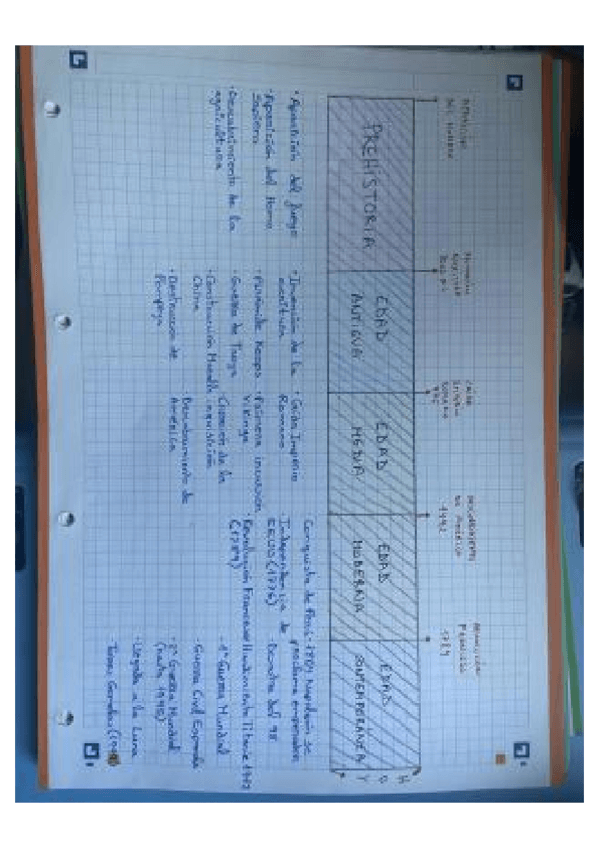 APARICIÓN
DEL HOMBRE
ESCRITURA
CAÍDA
IMPERIO
ROMANO
476
DESCUBRIMIENTO
DE AMÉRICA
1492
REVOLUCIÓN
FRANCESA
1789
PREHISTORIA
EDAD
ANTIGUA
EDAD
MEDIA
EDAD
MODERNA
EDAD
CONTEMPORÁNEA
HOY
· Aparición del fuego
· Aparición del Homo
Sapiens
· Descubrimiento de la
agricultura
· Invención de la
escritura
· Pirámide Keops
· Guerra de Troya
· Construcción Muralla
China
· Destrucción de
Pompeya
· Caída Imperio
Romano
· Primera incursión
Vikinga
· Creación de la
inquisición
· Descubrimiento de
América
Conquista de Perú
· Independencia de
EEUU (1776)
· Revolución Francesa
(1789)
· 1804 Napoleón se
proclama emperador
· Desastre del 98
· Hundimiento Titanic 1912
· 1ª Guerra Mundial
· Guerra Civil Española
· 2ª Guerra Mundial
(hasta 1945)
· Llegada a la Luna
· Torres Gemelas